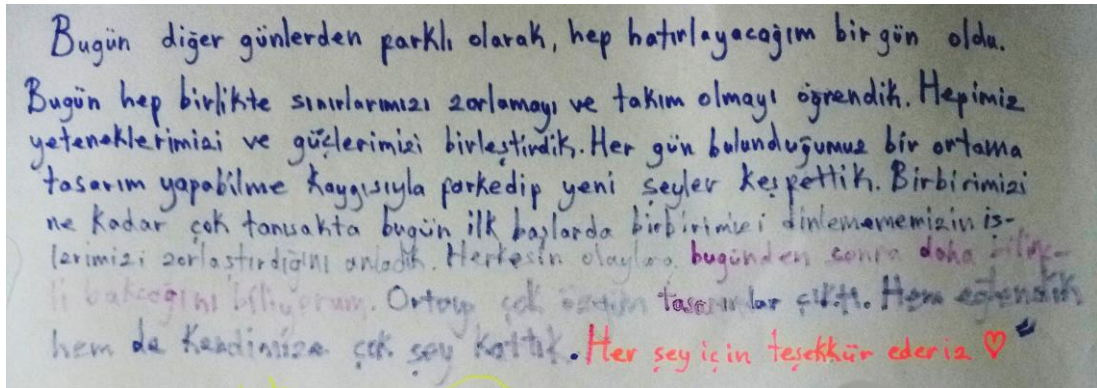 Bugün diğer günlerden farklı olarak, hep hatırlayacağım bir gün oldu.
Bugün hep birlikte sınırlarımızı zorlamayı ve takım olmayı öğrendik. Hepimiz
yeteneklerimizi ve güçlerimizi birleştirdik. Her gün bulunduğumuz bir ortama
tasarım yapabilme kaygısıyla farkedip yeni şeyler keşfettik. Birbirimizi
ne kadar çok tanısakta bugün ilk başlarda birbirimizi dinlemememizin iş-
lerimizi zorlaştırdığını anladık. Herkesin olaylara bugünden sonra daha bilinç-
li bakcağını biliyorum. Ortaya çok özgün tasarımlar çıktı. Hem eğlendik
hem de kendimize çok şey kattık. Her şey için teşekkür ederiz ♡